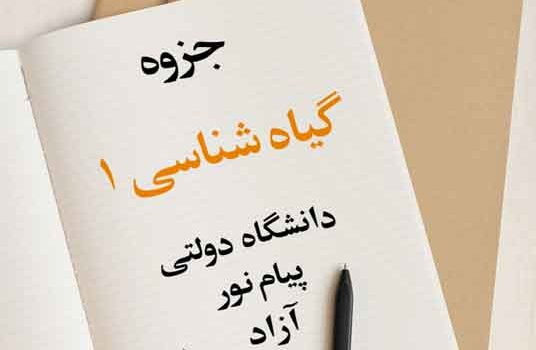 جزوه
گیاه شناسی ۱
دانشگاه دولتی
پیام نور
آزاد